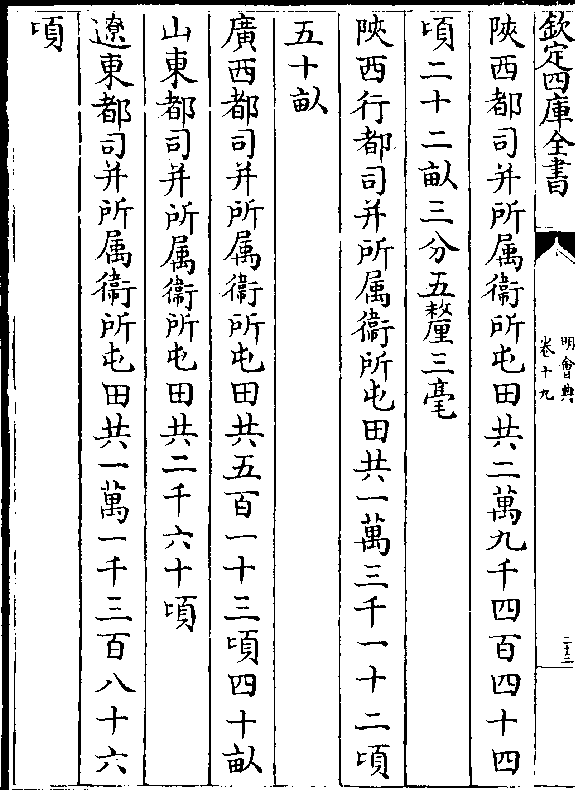 欽定四庫全書
明會典
卷十九
二十三
陝西都司并所属衞所屯田共二萬九千四百四十四
頃二十二畝三分五釐三毫
陝西行都司并所属衞所屯田共一萬三千一十二頃
五十畝
廣西都司并所属衞所屯田共五百一十三頃四十畝
山東都司并所属衞所屯田共二千六十頃
遼東都司并所属衞所屯田共一萬一千三百八十六
頃